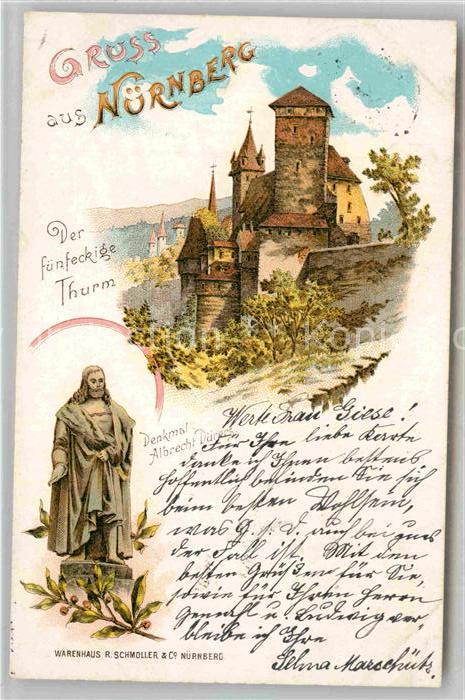 GRUSS
aus NÜRNBERG
Der
fünfeckige
Thurm
Denkmal
Albrecht Dürer
Werte Frau Giese!
Für Ihre liebe Karte
danke ich Ihnen bestens
hoffentlich befinden Sie sich
beim besten Wohlsein,
was G. s. d. auch bei uns
der Fall ist. Mit den
besten Grüßen für Sie,
sowie für Ihren Herrn
Gemahl u. Ludwig ver-
bleibe ich Ihre
Selma Marschütz.
WARENHAUS R. SCHMOLLER & Co NÜRNBERG.